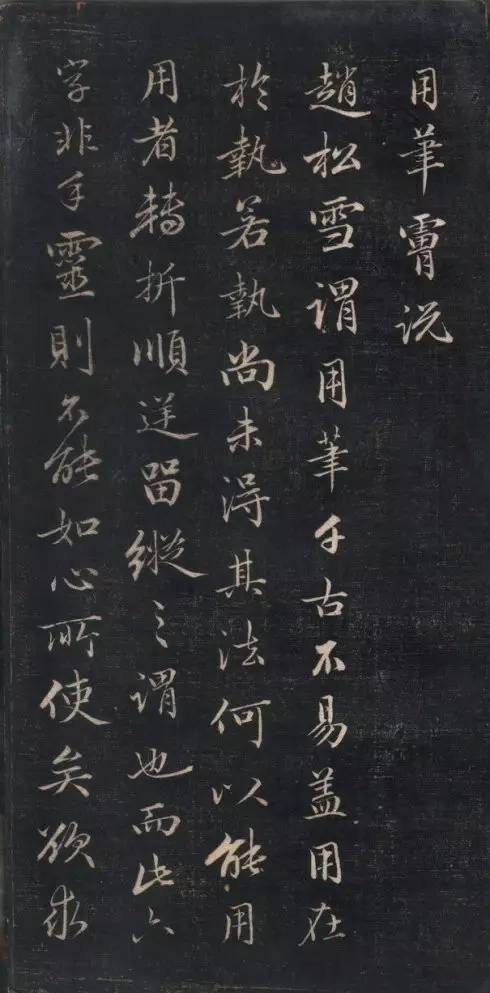 用筆膚説
趙松雪謂用筆千古不易盖用在
於執若執尚未得其法何以能用
用者轉折順逆留縱之謂也而此六
字非手靈則不能如心所使矣欲求